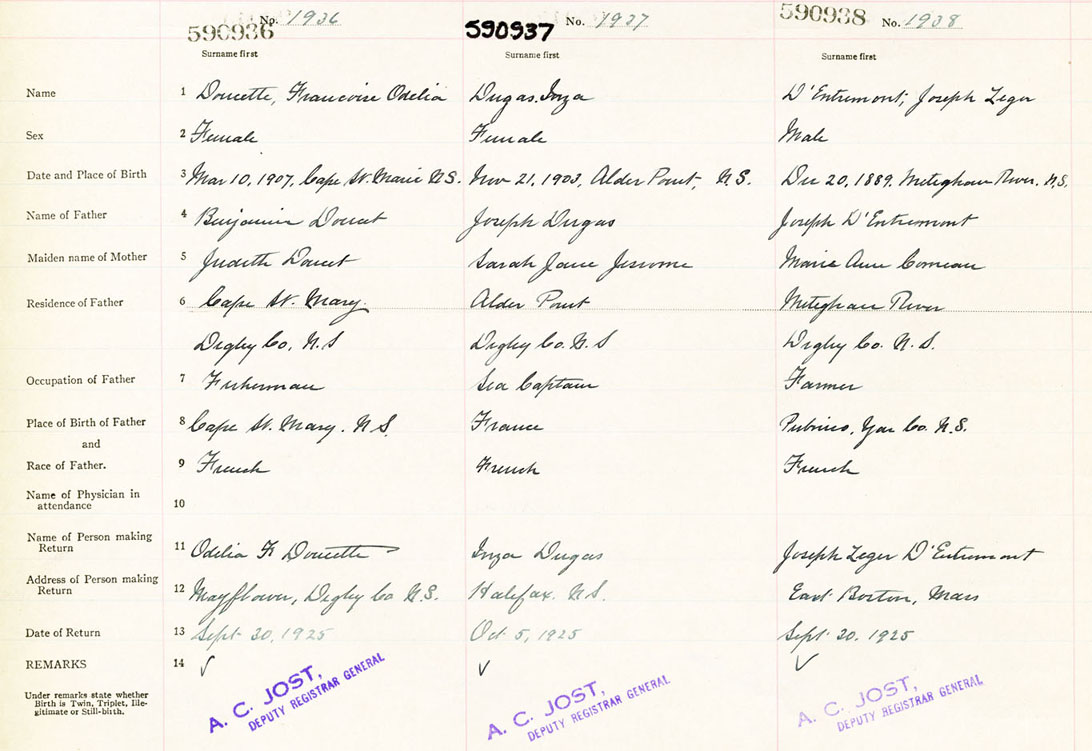 590936 No. 1936 590937 No. 1937 590938 No. 1938
Surname first Surname first Surname first
Name 1 Doucette, Francoise Odelia Dugas, Inza D'Entremont, Joseph Leger
Sex 2 Female Female Male
Date and Place of Birth 3 Mar 10, 1907, Cape St. Marie N.S. Nov 21, 1903, Alder Point, N.S. Dec 20, 1889. Meteghan River, N.S.
Name of Father 4 Benjamin Doucet Joseph Dugas Joseph D'Entremont
Maiden name of Mother 5 Judith Doucet Sarah Jane Jerome Marie Ann Comeau
Residence of Father 6 Cape St. Mary. Alder Point Meteghan River
Digby Co, N.S Digby Co. N.S Digby Co. N.S.
Occupation of Father 7 Fisherman Sea Captain Farmer
Place of Birth of Father 8 Cape St. Mary. N.S. France Pubnico, Yar Co. N.S.
and
Race of Father. 9 French French French
Name of Physician in
attendance 10
Name of Person making
Return 11 Odelia F Doucette Inza Dugas Joseph Leger D'Entremont
Address of Person making
Return 12 Mayflower, Digby Co N.S. Halifax. N.S. East Boston, Mass
Date of Return 13 Sept 30, 1925 Oct 5, 1925 Sept 30. 1925
REMARKS 14 ✓ ✓ ✓
Under remarks state whether
Birth is Twin, Triplet, Ille-
gitimate or Still-birth.
A. C. JOST, A. C. JOST, A. C. JOST,
DEPUTY REGISTRAR GENERAL DEPUTY REGISTRAR GENERAL DEPUTY REGISTRAR GENERAL